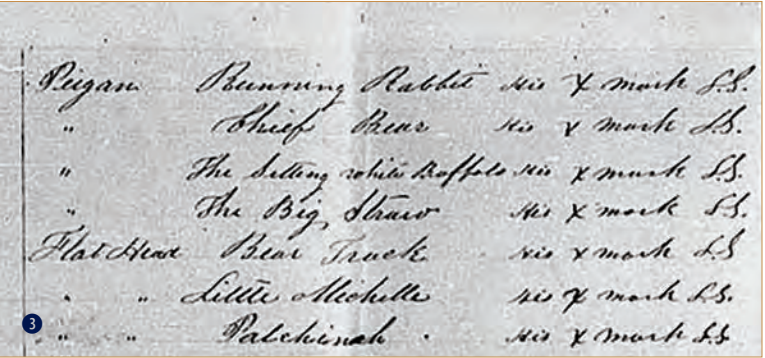 Peigan Running Rabbit His X mark L.S.
" Chief Bear His X mark L.S.
" The Sitting white Buffalo His X mark L.S.
" The Big Straw His X mark L.S.
Flat Head Bear Track His X mark L.S
" " Little Michelle His X mark L.S.
3 " " Palchinah His X mark L.S